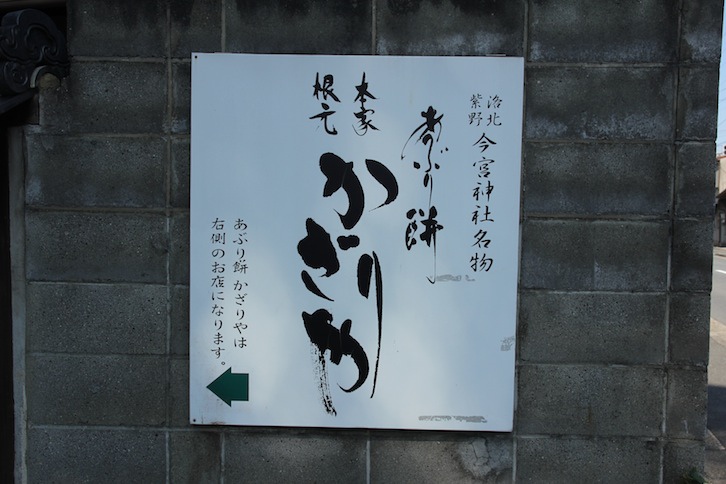 洛北
紫野
今宮神社名物
あぶり餅
本家
根元
かざりや
あぶり餅 かざりやは
右側のお店になります。